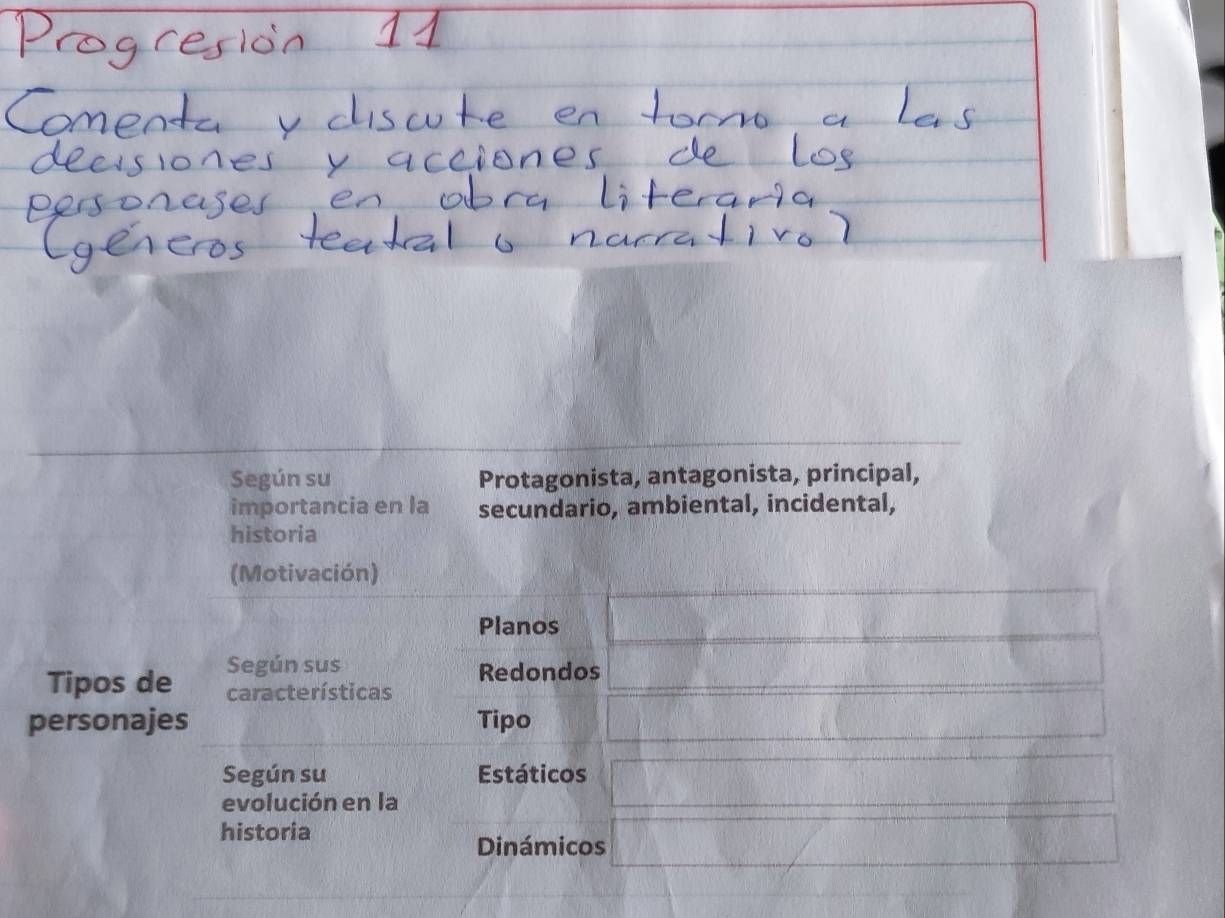 Progresión 11
Comenta y discute en torno a las
decisiones y acciones de los
personajes en obra literaria
(géneros teatral o narrativo)
Según su
importancia en la
historia
(Motivación)
Protagonista, antagonista, principal,
secundario, ambiental, incidental,
Tipos de
personajes
Según sus
características
Planos
Redondos
Tipo
Según su
evolución en la
historia
Estáticos
Dinámicos